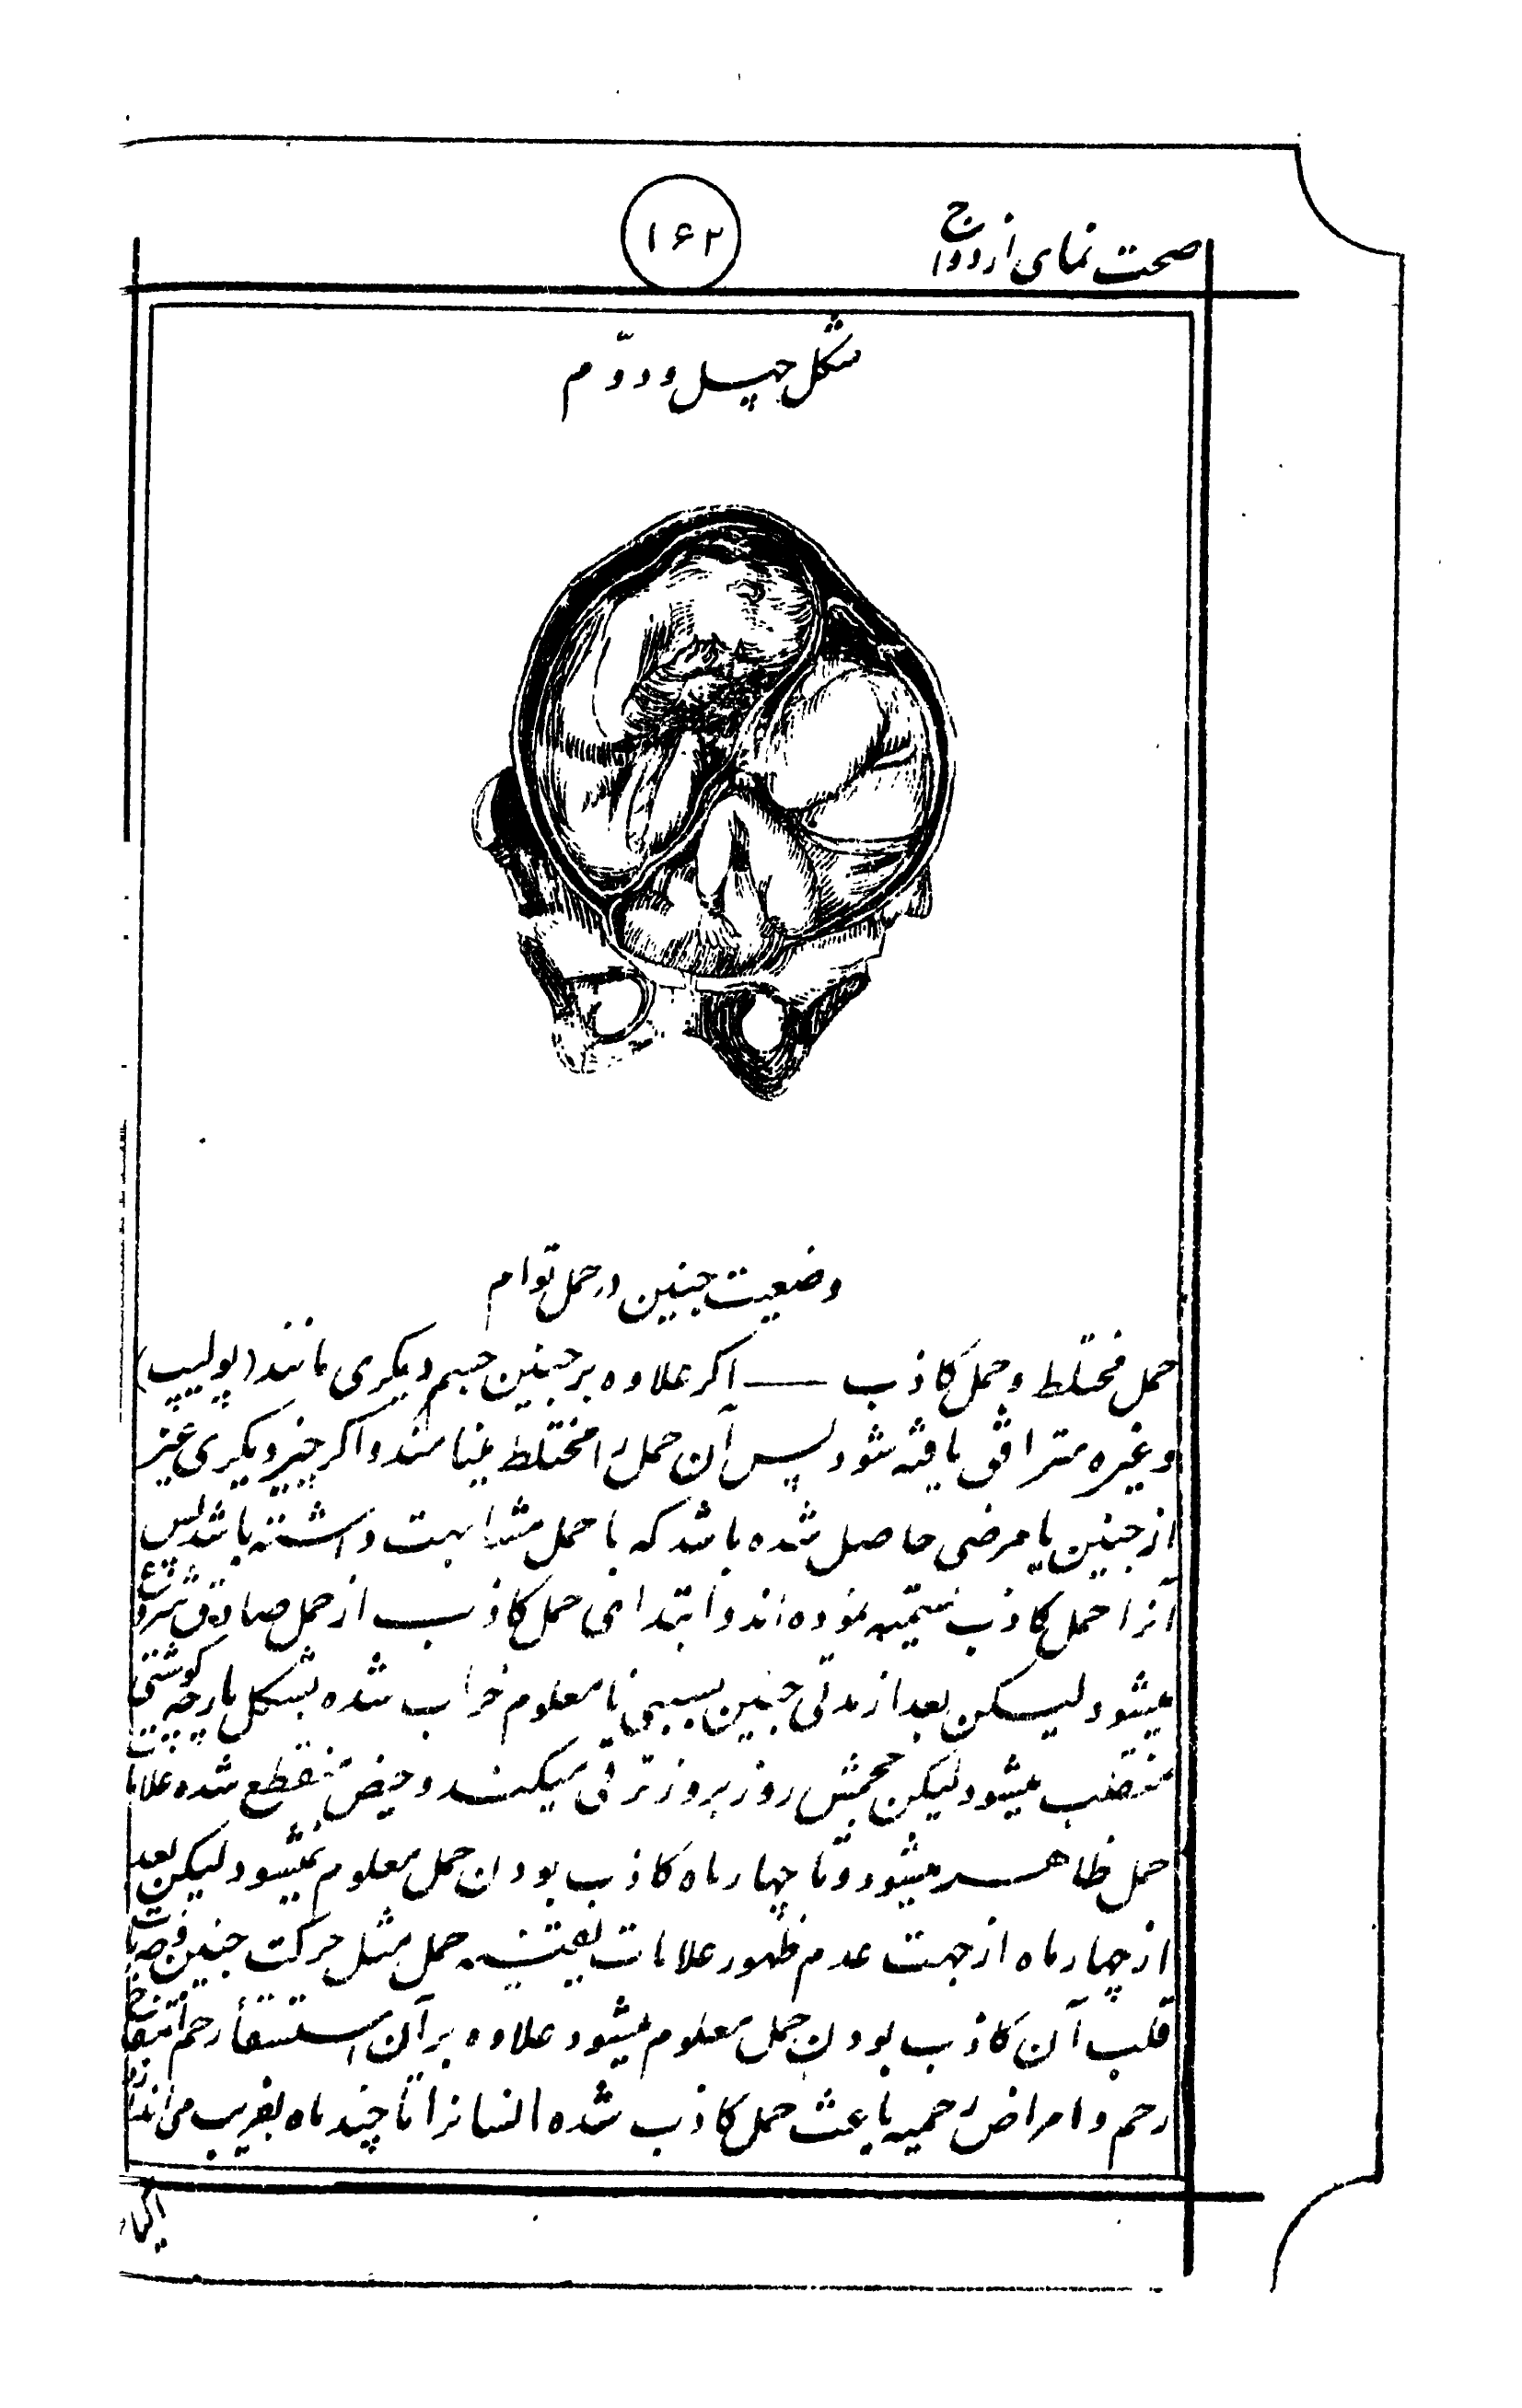 صحت نمای ازدواج
۱۶۲
شکل چهل و دوّم
وضعیت جنین در حمل توام
حمل مختلط و حمل کاذب — اکر علاوه بر جنین جسم دیکری مانند (پولیپ)
وغیره مترافق یافته شود پس آن حمل را مختلط مینامند و اکر چیز دیکری غیر
از جنین یا مرضی حاصل شده باشد که با حمل مشابهت داشته باشد پس
آنرا حمل کاذب تسمیه نموده اند و ابتدای حمل کاذب از حمل صادق شروع
میشود لیکن بعد از مدتی جنین بسببی نامعلوم خراب شده بشکل پارچه کوشتی
منقلب میشود لیکن حجمش روز بروز ترقی میکند و حیض منقطع شده علامات
حمل ظاهر میشود و تا چهار ماه کاذب بودن حمل معلوم نمیشود لیکن بعد
از چهار ماه از جهت عدم ظهور علامات یقینیه حمل مثل حرکت جنین و ضربات
قلب آن کاذب بودن حمل معلوم میشود علاوه بر آن استسقأ رحم انتفاخ
رحم و امراض رحمیه باعث حمل کاذب شده انسانرا تا چند ماه بفریب می اندازد